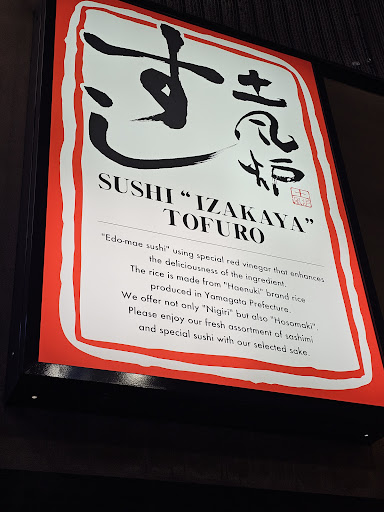 すし 土風炉
SUSHI "IZAKAYA"
TOFURO
"Edo-mae sushi" using special red vinegar that enhances
the deliciousness of the ingredient.
The rice is made from "Haenuki" brand rice
produced in Yamagata Prefecture.
We offer not only "Nigiri" but also "Hosomaki".
Please enjoy our fresh assortment of sashimi
and special sushi with our selected sake.